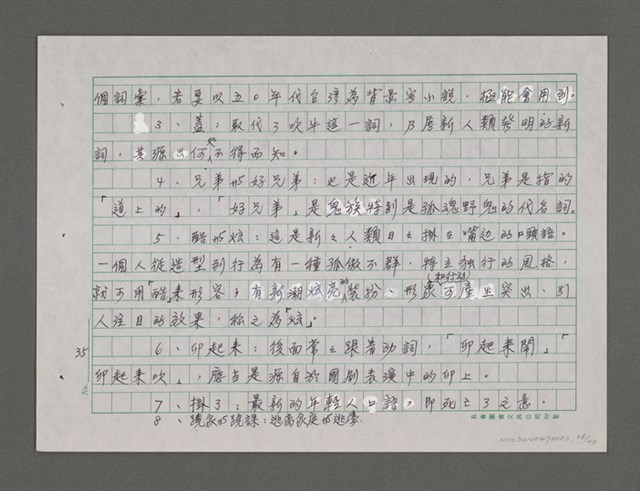 個詞彙，若要以五0年代台灣為背景寫小說，極能會用到。
3、蓋：取代了吹牛這一詞，乃屬新人類發明的新
詞，其源出何處不得而知。
4、兄弟vs好兄弟：也是近年出現的，兄弟是指的
「道上的」，「好兄弟」是鬼族特別是孤魂野鬼的代名詞。
5、酷vs炫：這是新新人類日日掛在嘴边的口頭語。
一個人從造型到行為有一種孤傲不群、特立独行的風格，
就可用「酷」來形容；有新潮炫亮的裝扮、形象(和行頭)可產生突出、引
人注目的效果，称之為「炫」。
35
6、卯起來：後面常常跟着动詞，「卯起來鬧」「
卯起來吹」，應当是源自於國劇表演中的卯上。
No.
7、掛了：最新的年輕人口語，即死亡了之意。
8、蹺家vs蹺課：逃离家庭vs逃學。